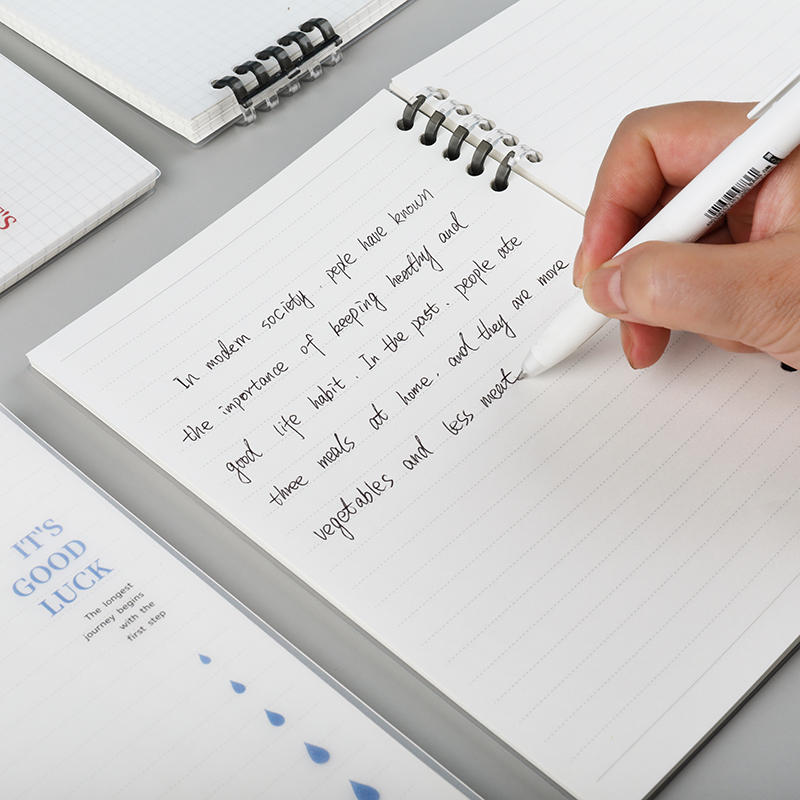 In modern society. peple have known
the importance of keeping healthy and
good life habit. In the past. people ate
three meals at home. and they are more
vegetables and less meat
IT'S
GOOD
LUCK
The longest
journey begins
with the
first step